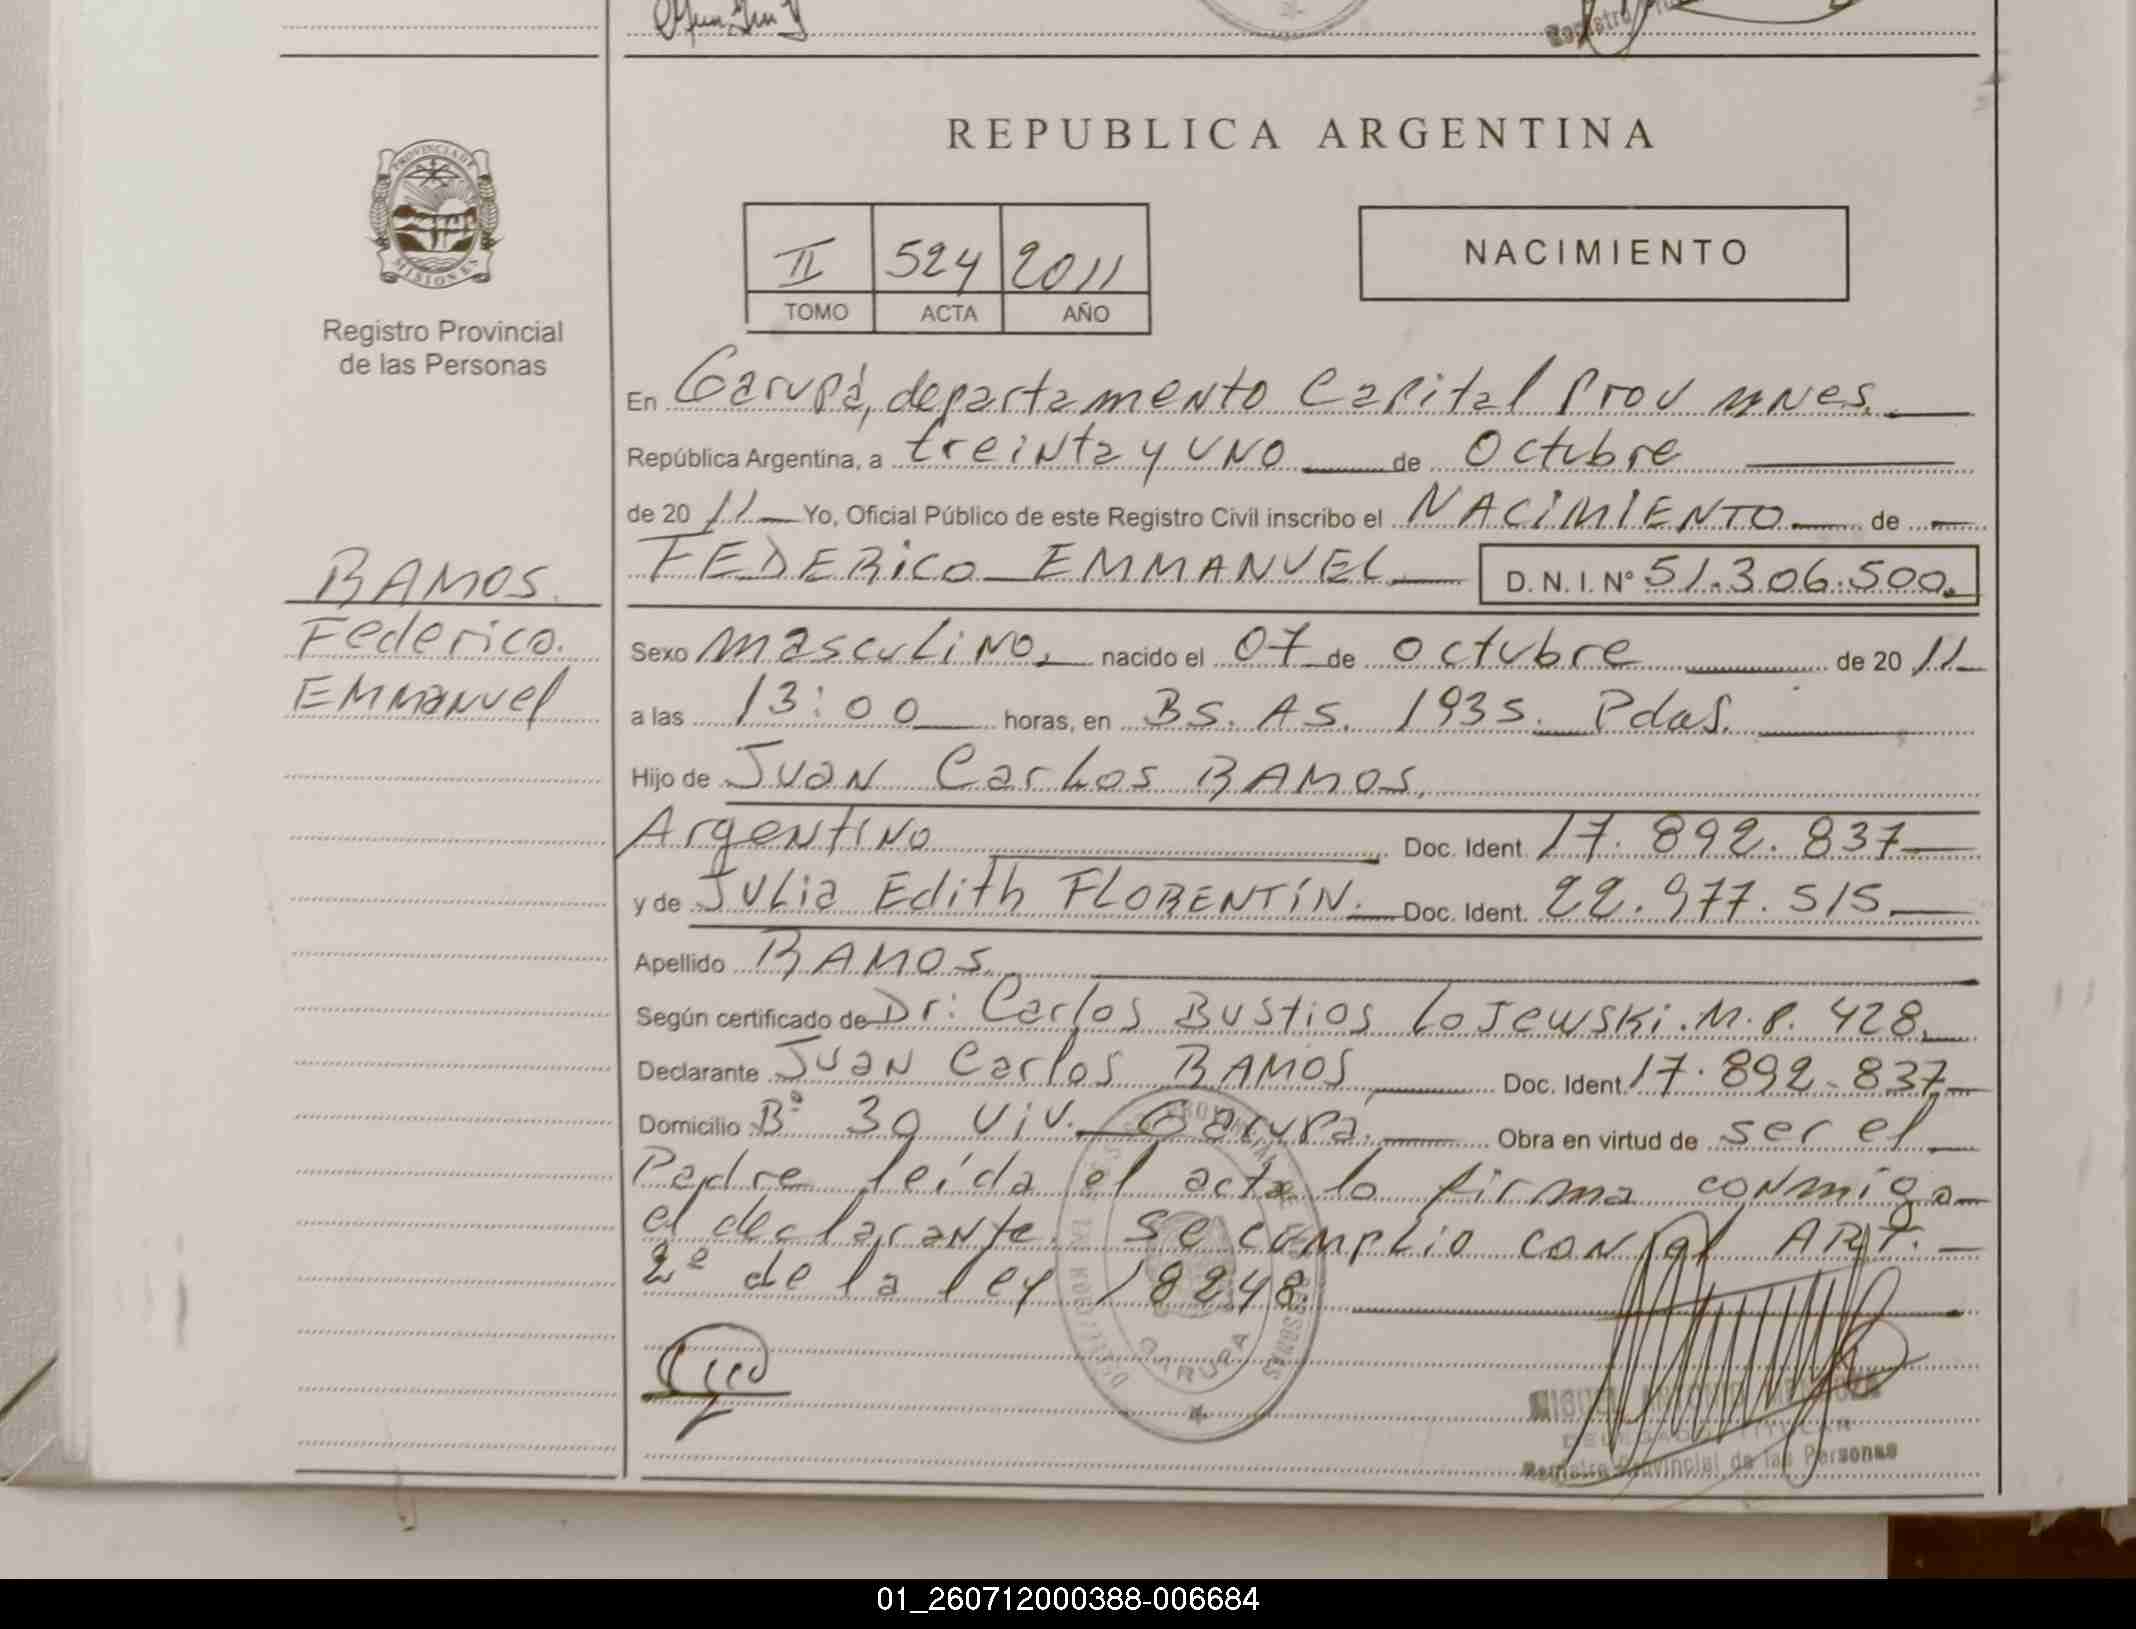 REPUBLICA ARGENTINA
PROVINCIA DE
MISIONES
Registro Provincial
de las Personas
II 524 2011
TOMO ACTA AÑO
NACIMIENTO
En Garupá, departamento Capital Prov Mnes.
República Argentina, a treinta y uno de Octubre
de 2011 Yo, Oficial Público de este Registro Civil inscribo el NACIMIENTO de
FEDERICO EMMANUEL D.N.I. Nº 51.306.500.
RAMOS.
Federico.
EMMANUEL
Sexo masculino, nacido el 07 de octubre de 2011
a las 13:00 horas, en Bs. As. 1935. Pdas.
Hijo de Juan Carlos RAMOS,
Argentino Doc. Ident. 17.892.837
y de Julia Edith FLORENTÍN. Doc. Ident. 22.977.515
Apellido RAMOS
Según certificado de Dr: Carlos Bustios Lojewski. M.P. 428,
Declarante Juan Carlos RAMOS Doc. Ident. 17.892.837
Domicilio Bº 30 Viv. Garupá. Obra en virtud de ser el
Padre leída el acta la firma conmigo
el declarante. Se cumplio con el ART.
2º de la ley 18248.
GARUPA
Registro Provincial de las Personas
01_260712000388-006684